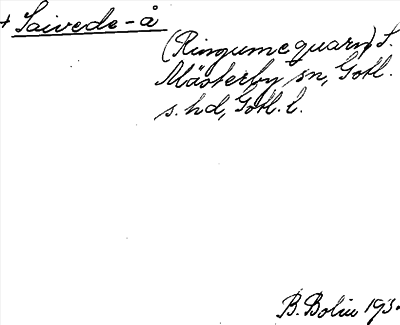 + Saivede-å
(Ringume quarn) S.
Mästerby sn, Gotl.
s. hd, Gotl. l.
B. Bolin 193.